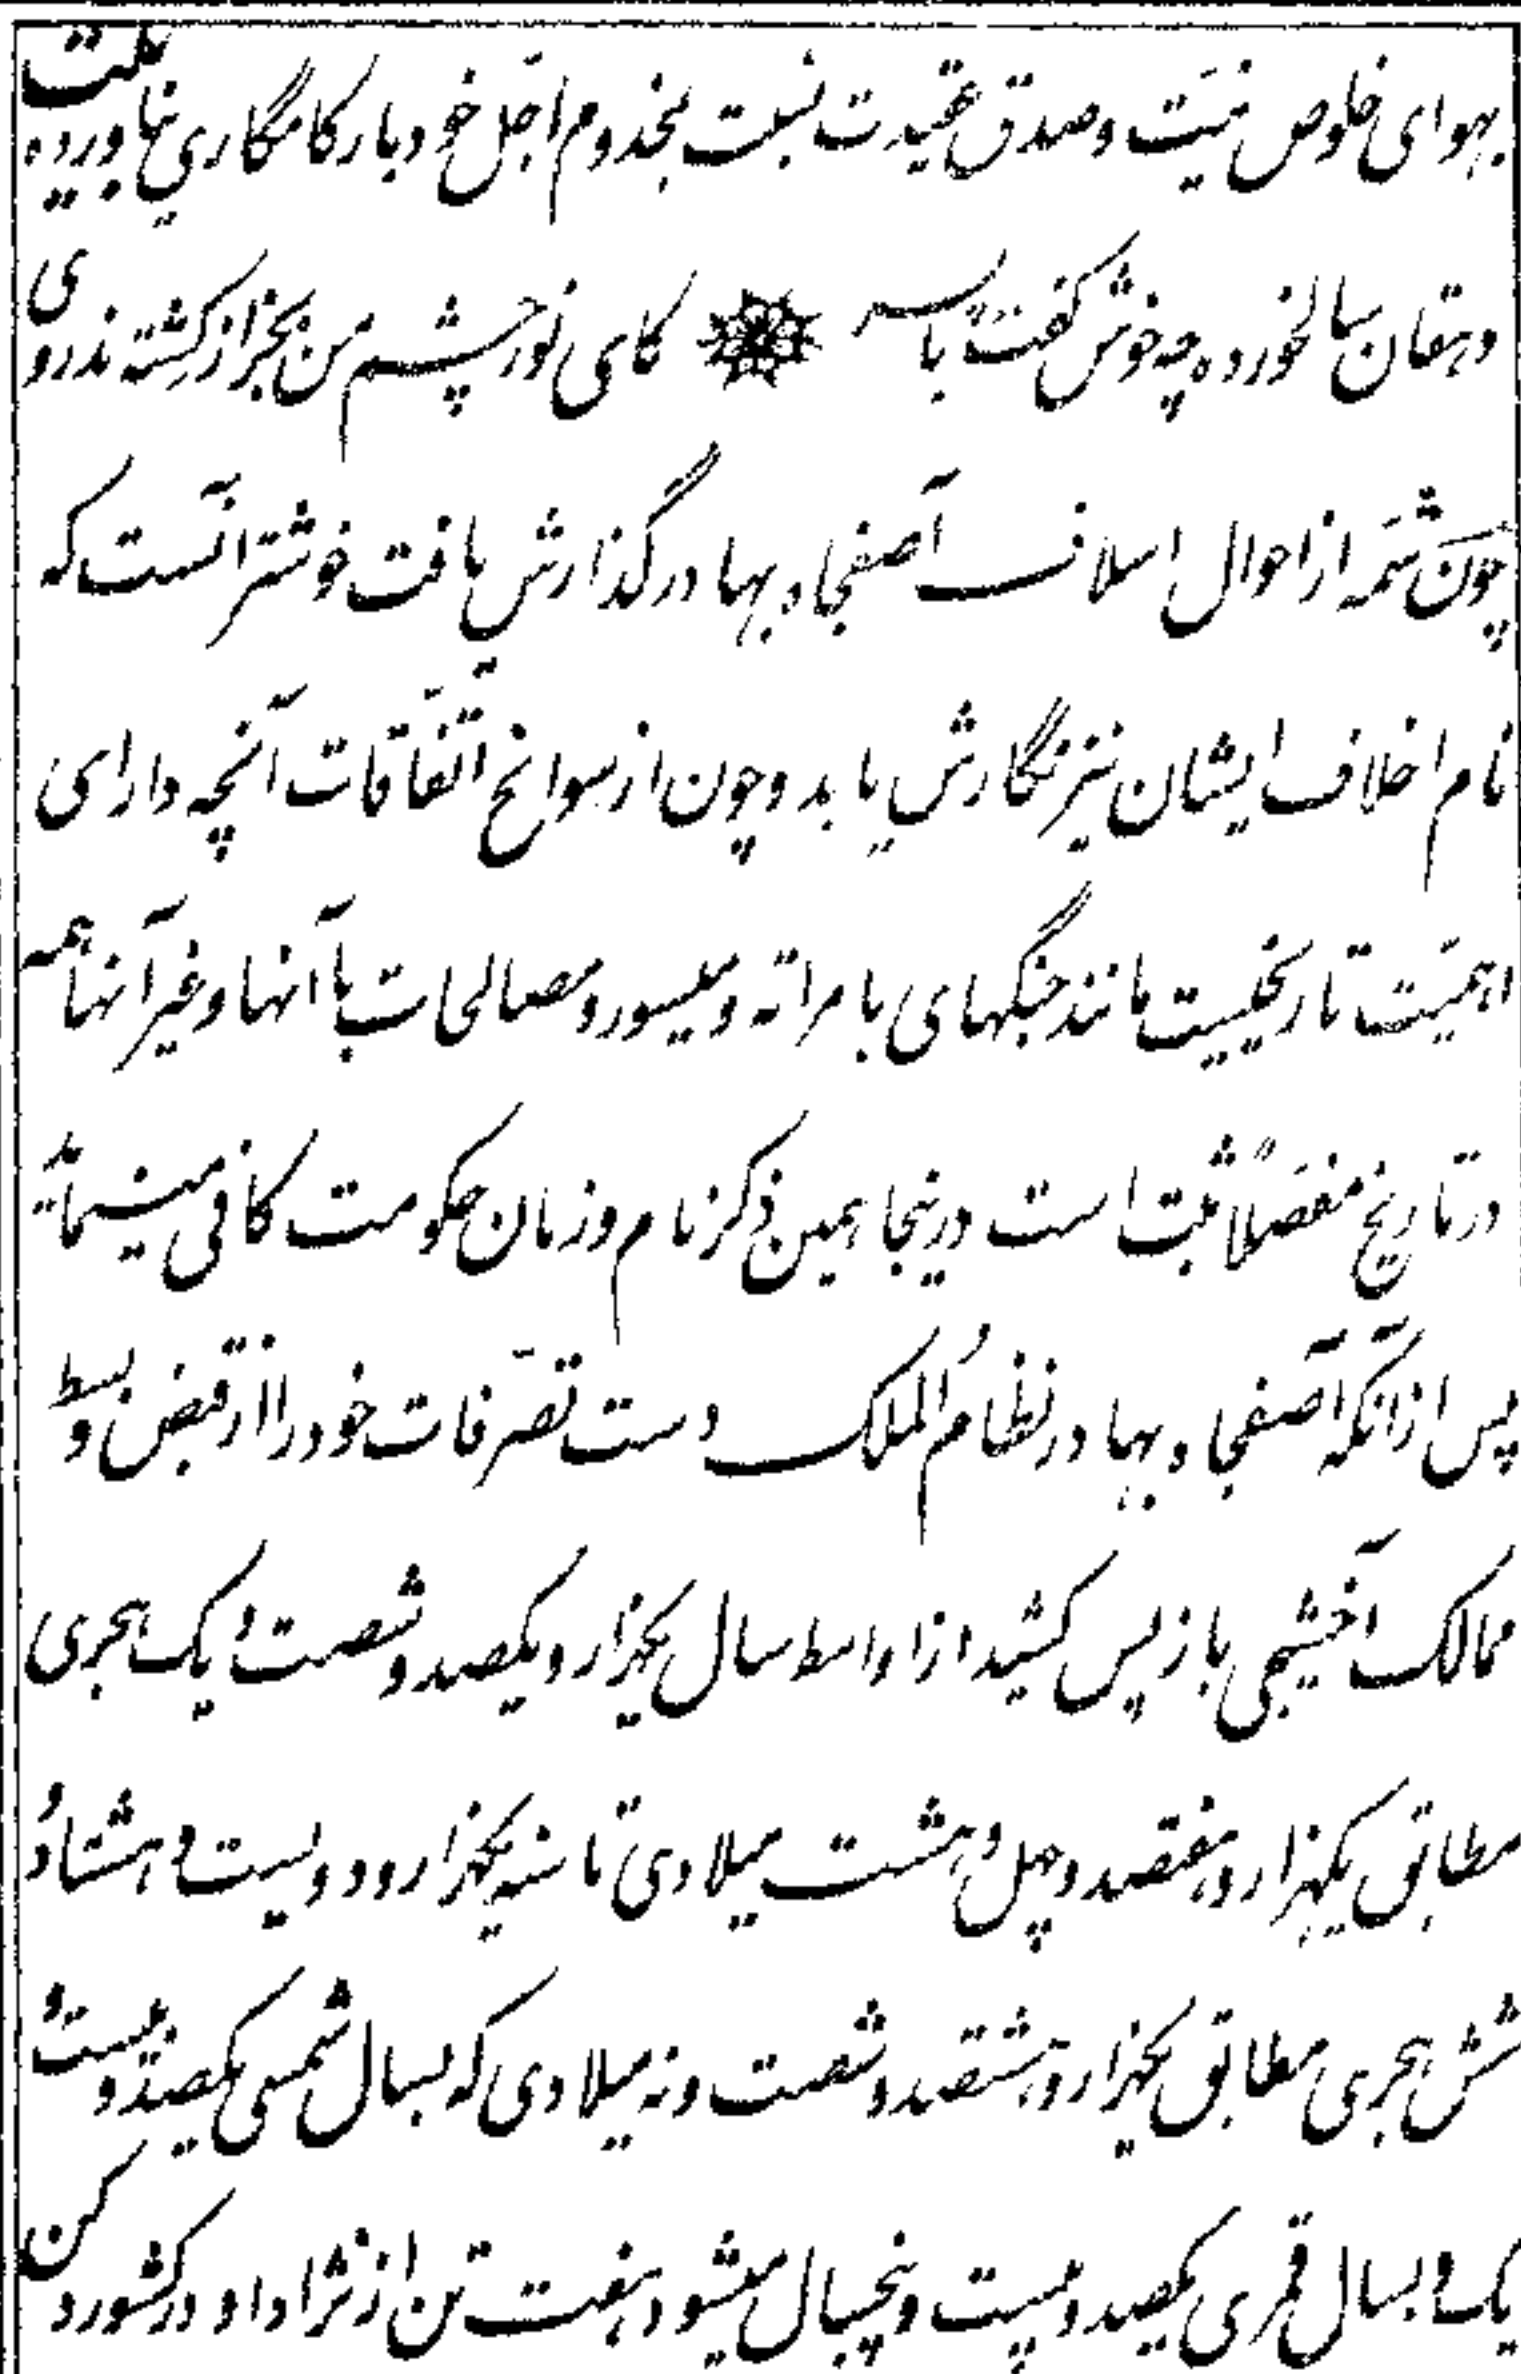 بهوای خلوص نیّت و صدق عقیدت نسبت بمخدوم اجلّ خود بار کامگاری نیاورده
دهقان سالخورده چه خوش گفت با پسر کای نور چشم من بجز از کِشته ندروی
چون شمّه از احوال اسلاف آصفجاه بهادر گذارش یافت خوشتر آنست که
نام اخلاف ایشان نیز نگارش یابد و چون از سوانح اتّفاقات آنچه دارای
اهمیّت تاریخیست مانند جنگهای با مراته و میسور و مصالحات با آنها و غیر آنها همه
در تاریخ مفصّلاً ثبت است درینجا همین ذکر نام و زمان حکومت کافی مینماید
پس از آنکه آصفجاه بهادر نظامُ الملک دست تصرّفات خود را از قبض و بسط
ممالک آخشیجی باز پس کشید از اواسط سال یکهزار و یکصد و شصت و یک هجری
مطابق یکهزار و هفتصد و چهل و هشت میلادی تا سنه یکهزار و دویست و هشتاد و
شش هجری مطابق یکهزار و هشتصد و شصت و نه میلادی که بسال شمسی یکصد و بیست و
یک و بسال قمری یکصد و بیست و پنجسال میشود هفت تن از نژاد او در کشور دکن